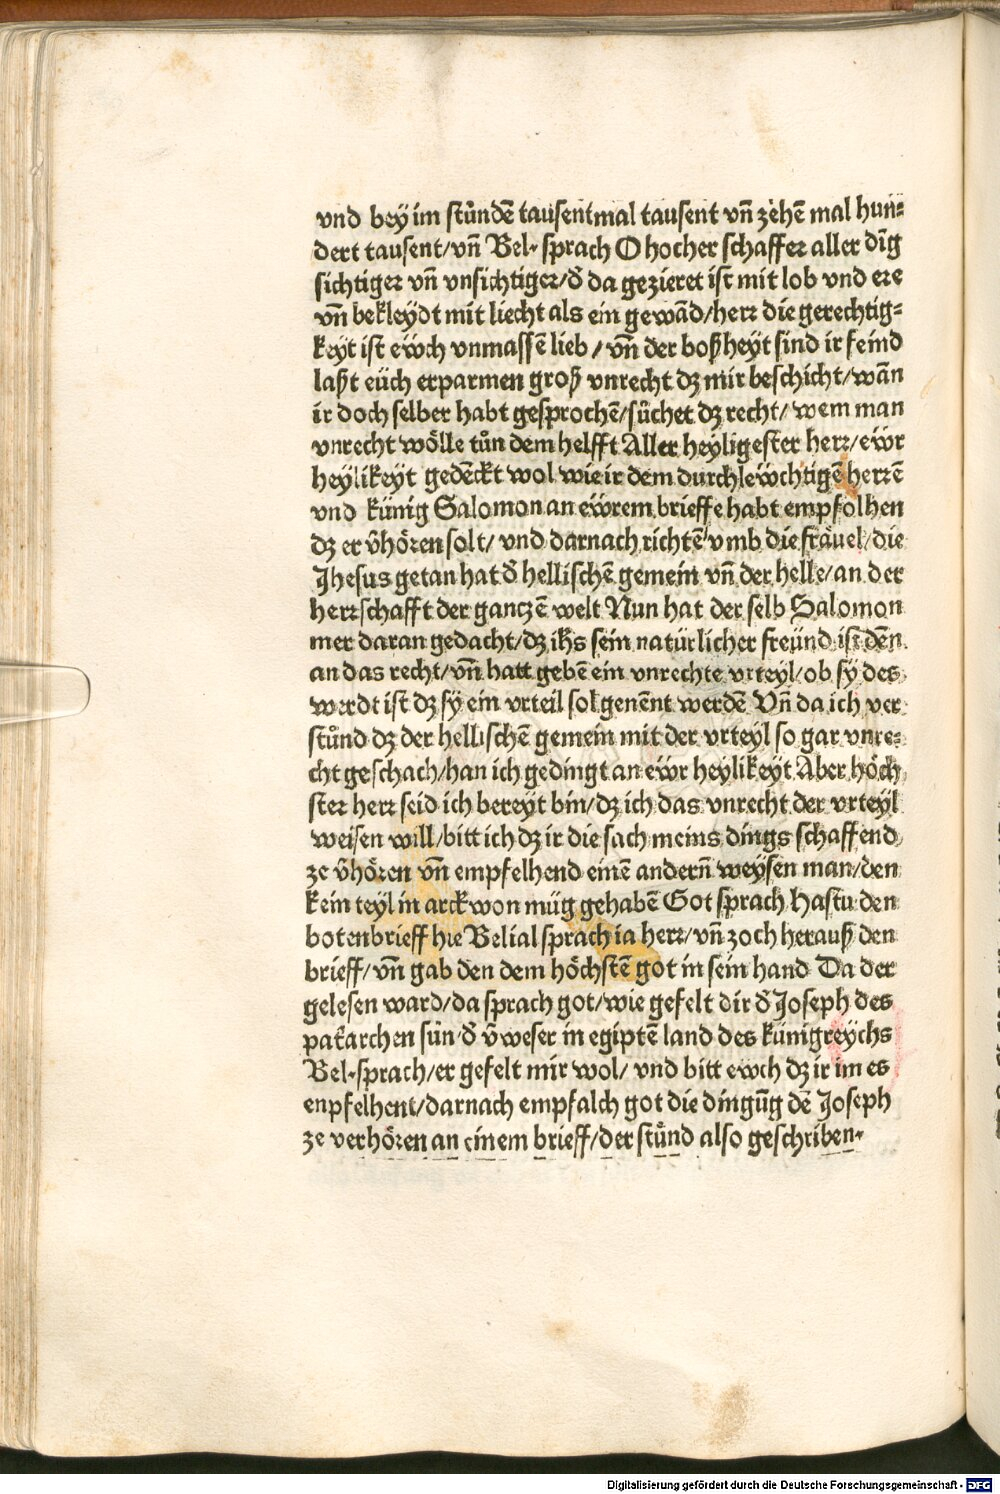 vnd bey im stůndē tausentmal tausent vñ zehē mal hun⸗
dert tausent/vñ Bel· sprach O hocher schaffer aller dīg
sichtiger vñ vnsichtiger/đ da gezieret ist mit lob vnd ere
vñ bekleydt mit liecht als ein gewād/herr die gerechtig⸗
keyt ist eẅch vnmassē lieb/vñ der boßheyt sind ir feind
laßt eüch erparmen groß vnrecht dz mir beschicht/wān
ir doch selber habt gesprochē/sůchet dz recht/wem man
vnrecht wölle tůn dem helfft Aller heyligester herr/eẅr
heylikeyt gedēckt wol wie ir dem durchleẅchtigē herrē
vnd künig Salomon an eẅrem brieffe habt empfolhen
dz er v̄hözen solt/ vnd darnach richtē vmb die fräuel/die
Jhesus getan hat đ hellischē gemein vñ der helle/an der
herrschafft der ganczē welt Nun hat der selb Salomon
mer daran gedacht/dz ihs sein natürlicher freünd ist dēn
an das recht/vñ hatt gebē ein vnrechte vrteyl/ob sy des
werdt ist dz sy ein vrteil sol genēnt werdē Vñ da ich ver
stůnd dz der hellischē gemein mit der vrteyl so gar vnre⸗
cht geschach/han ich gedingt an eẅr heylikeyt Aber höch
ster herr seid ich bereyt bin/dz ich das vnrecht der vrteyl
weisen will/bitt ich dz ir die sach meins dings schaffend
ze v̄hören vñ empfelhend einē andern̄ weysen man/den
kein teyl in arckwon müg gehabē Got sprach Hastu den
botenbrieff hie Belial sprach ia herr/vñ zoch herauß den
brieff/vñ gab den dem höchstē got in sein hand Da der
gelesen ward/da sprach got/wie gefelt dir đ Joseph des
patarchen sun·đ v̄weser in egiptē land des künigreychs
Bel·sprach/er gefelt mir wol/ vnd bitt ewch dz ir im es
enpfelhent/darnach empfalch got die dingūg dē Joseph
ze verhören an einem brieff/der stůnd also geschriben·
Digitalisierung gefördert durch die Deutsche Forschungsgemeinschaft - DFG